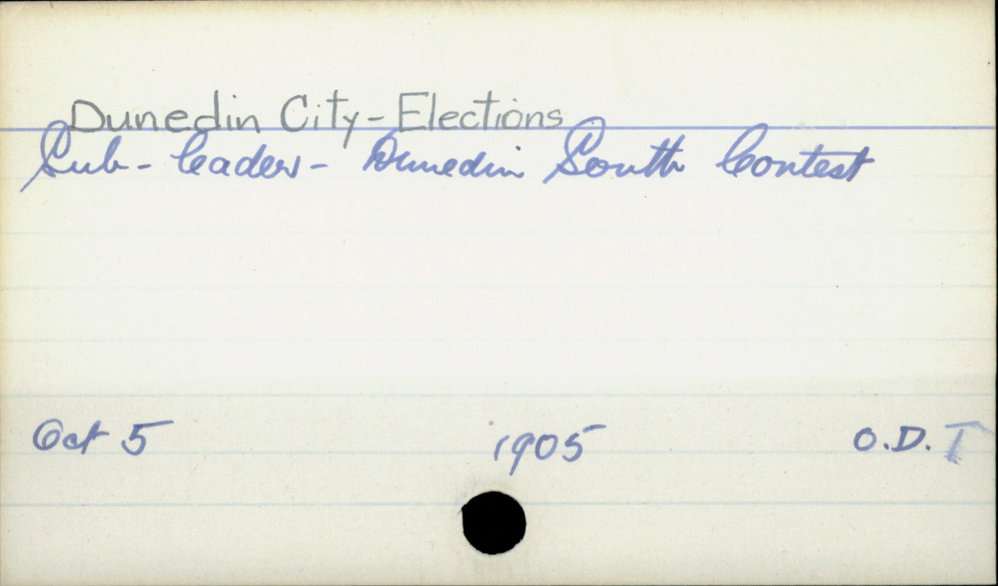 Dunedin City - Elections
Sub-leader - Dunedin South Contest
Oct 5 1905 O.D.T